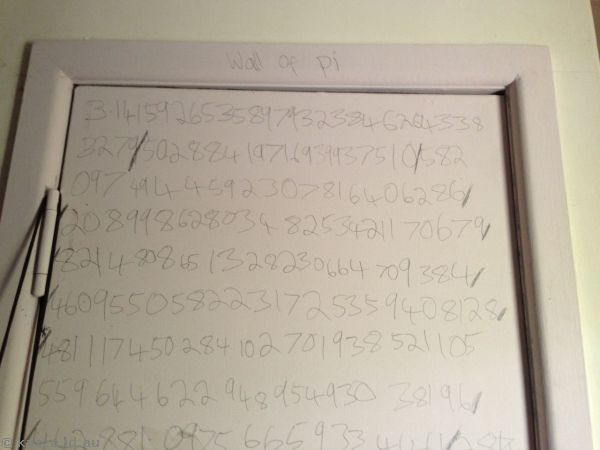 Wall of pi
3.14159265358979323846264338
3279/50288419716939937510/582
0974944592307816406286/
/208998628034 82534211 70679/
/8214808651328230664709384/
/4609550582231725359408128/
/481117450284102701938521105
559644622948954930 38196/
0975 665933